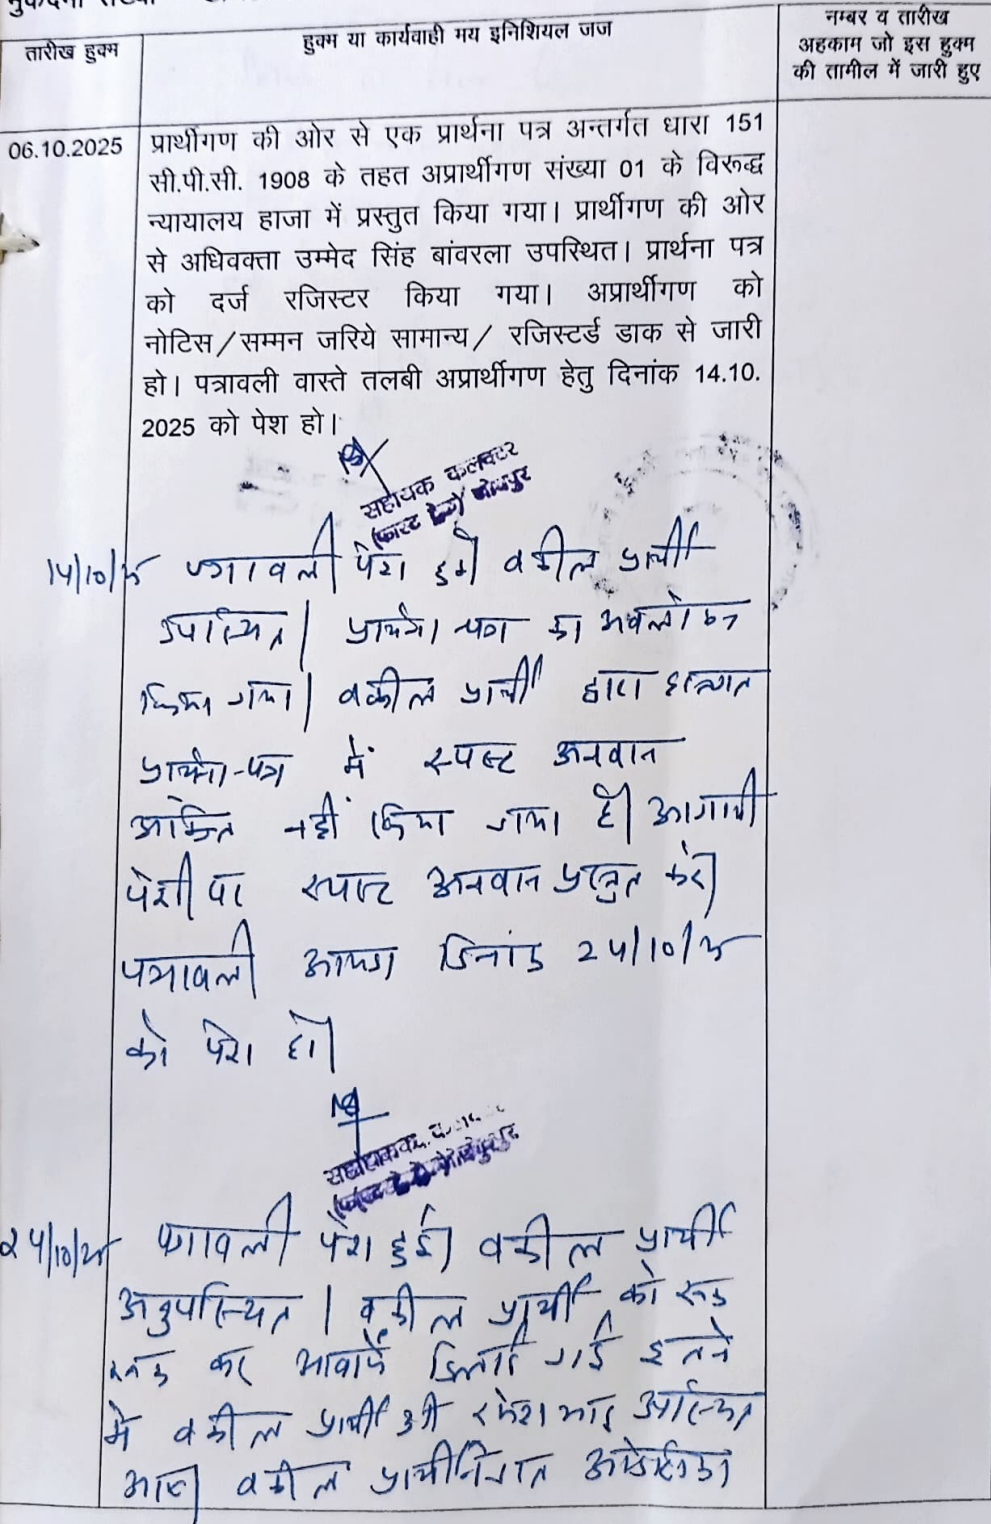 तारीख हुक्म
हुक्म या कार्यवाही मय इनिशियल जज
नम्बर व तारीख
अहकाम जो इस हुक्म
की तामील में जारी हुए
06.10.2025
प्रार्थीगण की ओर से एक प्रार्थना पत्र अन्तर्गत धारा 151
सी.पी.सी. 1908 के तहत अप्रार्थीगण संख्या 01 के विरूद्ध
न्यायालय हाजा में प्रस्तुत किया गया। प्रार्थीगण की ओर
से अधिवक्ता उम्मेद सिंह बांवरला उपस्थित। प्रार्थना पत्र
को दर्ज रजिस्टर किया गया। अप्रार्थीगण को
नोटिस/सम्मन जरिये सामान्य/ रजिस्टर्ड डाक से जारी
हो। पत्रावली वास्ते तलबी अप्रार्थीगण हेतु दिनांक 14.10.
2025 को पेश हो।
सहायक कलक्टर
(फास्ट ट्रेक) जोधपुर
14/10/25 पत्रावली पेश हुई वकील प्रार्थी
उपस्थित। प्रार्थना पत्र का अवलोकन
किया गया। वकील प्रार्थी द्वारा हस्तगत
प्रार्थना-पत्र में स्पष्ट अनवान
अंकित नहीं किया गया है। आगामी
पेशी पर स्पष्ट अनवान प्रस्तुत करे।
पत्रावली आयन्दा दिनांक 24/10/25
को पेश हो।
24/10/25 पत्रावली पेश हुई। वकील प्रार्थी
अनुपस्थित। वकील प्रार्थी को रूक
रूक कर आवाजें दिलाई गई इतने
में वकील प्रार्थी श्री उपस्थित
आए। वकील